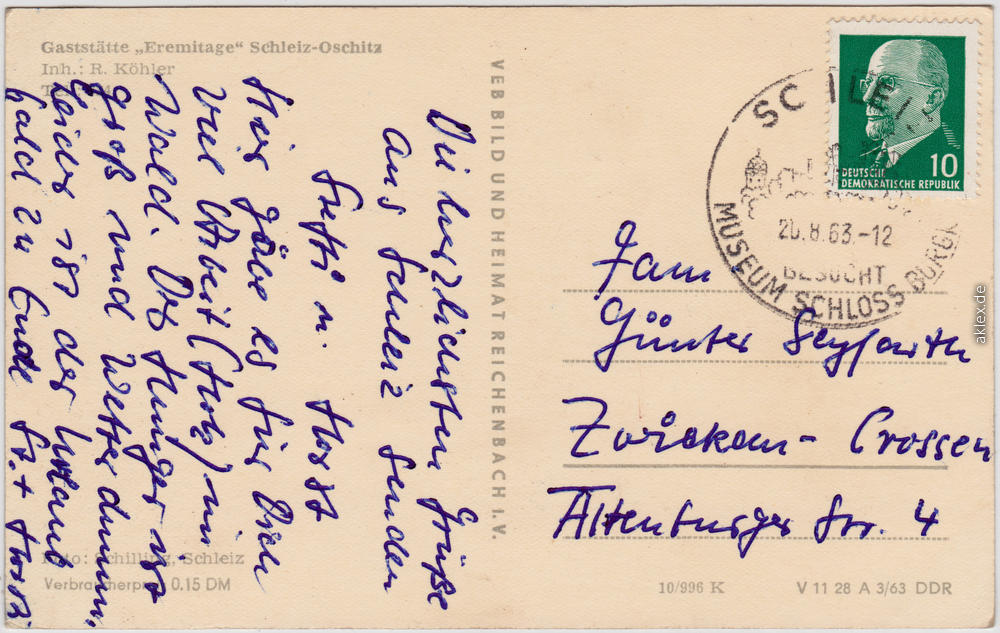 Gaststätte „Eremitage“ Schleiz-Oschitz
Inh.: R. Köhler
Die herzlichsten Grüße
aus Schleiz senden
Steffi u. Horst
Hier gäbe es für Dich
viel Arbeit (Holz) im
Wald. Der Hunger ist
groß und Wetter dumm,
leider ist der Urlaub
bald zu Ende St. + Horst
Foto: Schilling, Schleiz
Verbraucherpreis 0.15 DM
VEB BILD UND HEIMAT REICHENBACH I. V.
SCHLEIZ
20.8.63.-12
BESUCHT
MUSEUM SCHLOSS BURGK
10
DEUTSCHE
DEMOKRATISCHE REPUBLIK
Fam
Günter Seyfarth
Zwickau - Crossen
Altenburger Str. 4
10/996 K
V 11 28 A 3/63 DDR
aklex.de